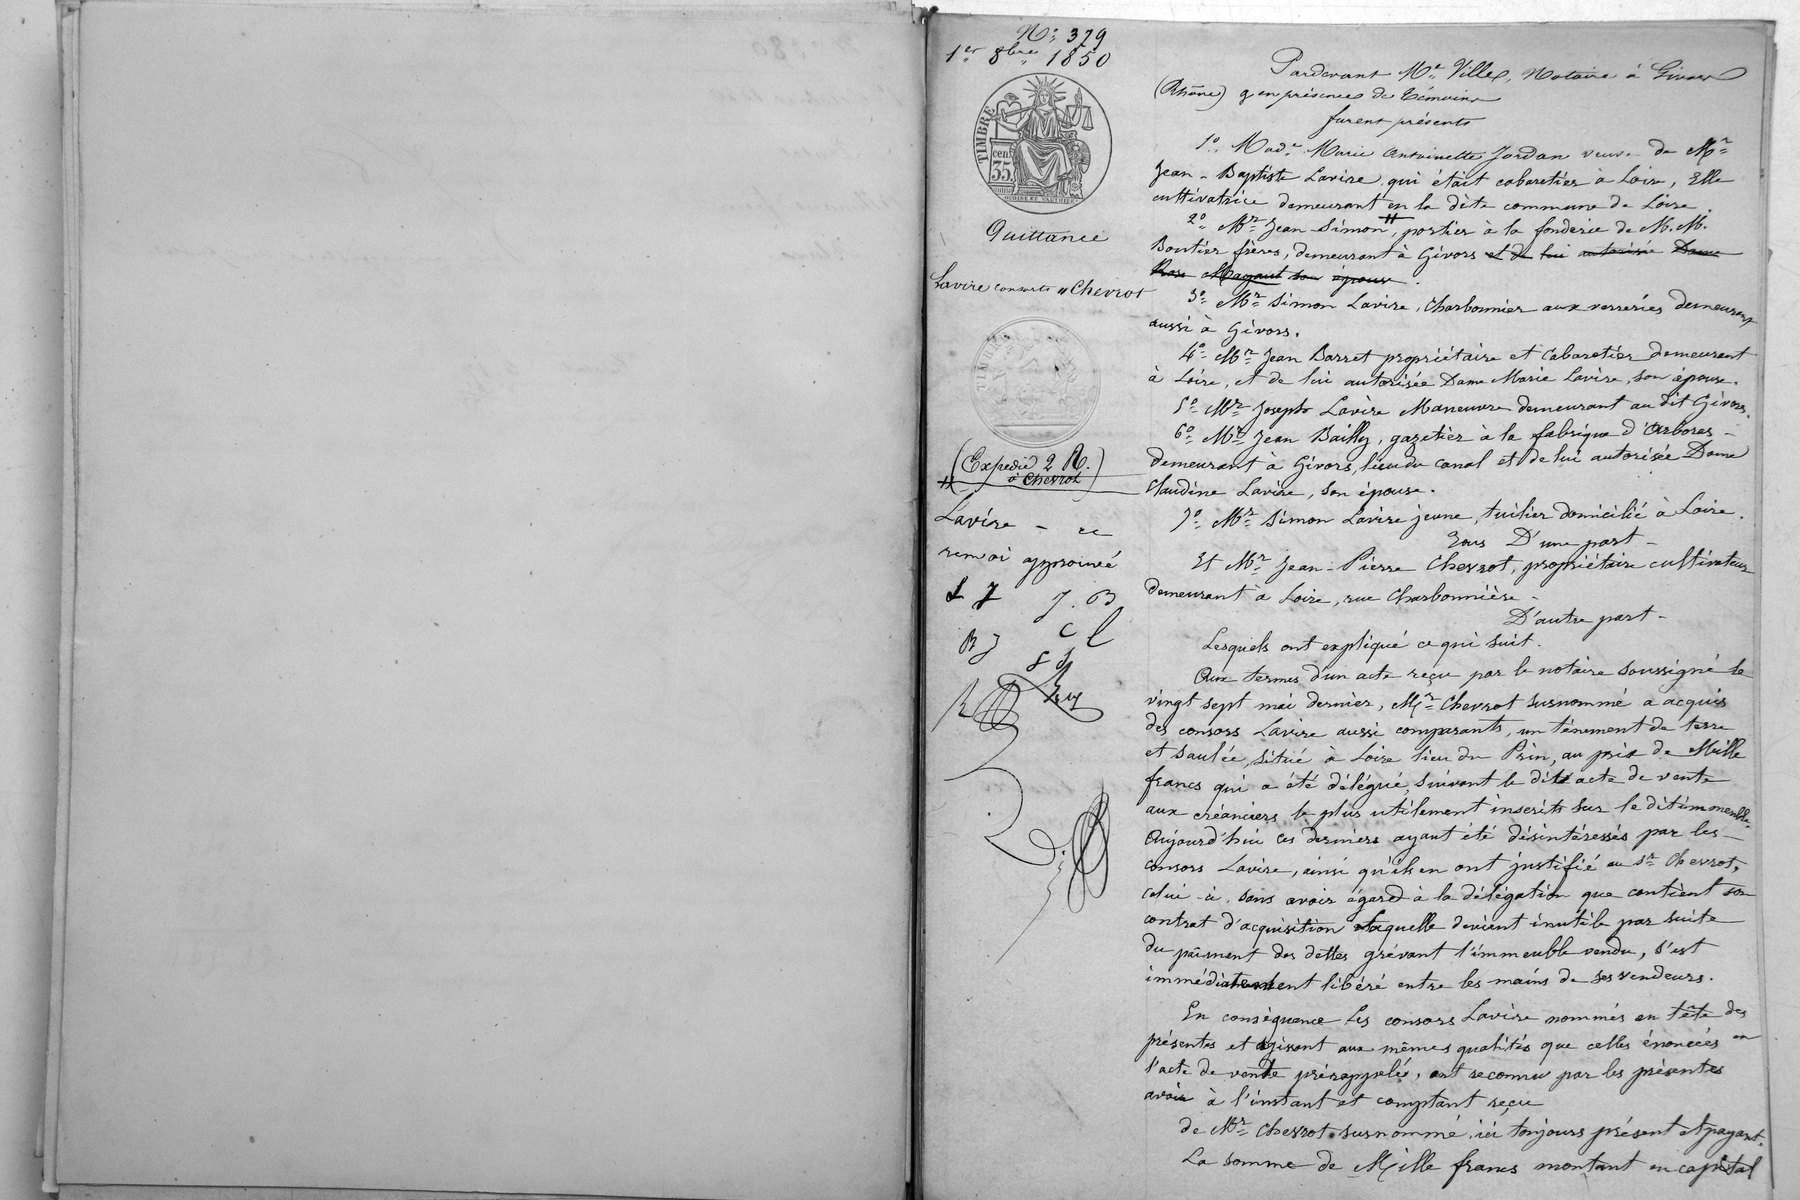 N° 379
1er 8bre 1850
TIMBRE
cen.
35.
Quittance
Lavire consorts à Chevrot
TIMBRE
(Expedié 2 R.
à Chevrot)
Lavire
renvoi approuvé
J. B
C l
B J
S J
Pardevant Me Ville, Notaire à Givors
(Rhône) & en présence de témoins
furent présents
1° Made Marie Antoinette Jordan veuve de Mr
Jean-Baptiste Lavire qui était cabaretier à Loire, Elle
cultivatrice demeurant en la dite commune de Loire.
2° Mr Jean Simon, portier à la fonderie de M.M.
Boutier frères, demeurant à Givors et de lui autorisée Dame
Rose Magaut son épouse.
3° Mr Simon Lavire, Charbonnier aux verreries demeurant
aussi à Givors.
4° Mr Jean Barret propriétaire et Cabaretier demeurant
à Loire, et de lui autorisée Dame Marie Lavire, son épouse.
5° Mr Joseph Lavire Maneuvre demeurant au dit Givors.
6° Mr Jean Bailly, gazetier à la fabrique d'Arbores
demeurant à Givors, lieu du canal et de lui autorisée Dame
Claudine Lavire, son épouse.
7° Mr Simon Lavire jeune, tuilier domicilié à Loire.
Tous D'une part
Et Mr Jean-Pierre Chevrot, propriétaire cultivateur
demeurant à Loire, rue Charbonnière
D'autre part
Lesquels ont expliqué ce qui suit.
Aux termes d'un acte reçu par le notaire soussigné le
vingt sept mai dernier, Mr Chevrot susnommé a acquis
des consors Lavire aussi comparants, un ténement de terre
et saulée, situé à Loire lieu du Prin, au prix de Mille
francs qui a été délégué, suivant le dit acte de vente
aux créanciers le plus utilement inscrits sur le dit immeuble.
Aujourd'hui ces derniers ayant été désintéressés par les
consors Lavire, ainsi qu'ils en ont justifié au Sr Chevrot,
celui-ci, sans avoir égard à la délégation que contient son
contrat d'acquisition laquelle devient inutile par suite
du paiement des dettes grévant l'immeuble vendu, s'est
immédiatement libéré entre les mains de ses vendeurs.
En conséquence les consors Lavire nommés en tête des
présentes et agissant aux mêmes qualités que celles énoncées en
l'acte de vente prérappelé, ont reconnu par les présentes
avoir à l'instant et comptant reçu
de Mr Chevrot susnommé, ici toujours présent et payant.
La somme de Mille francs montant en capital